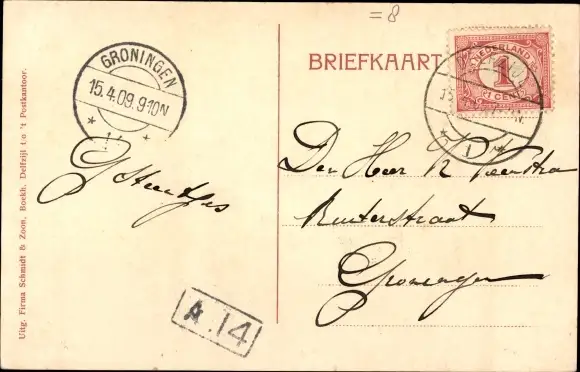 =8
GRONINGEN
15.4.09.9-10N
BRIEFKAART
NEDERLAND
1
1 CENT
Den Heer R Veenstra
Ruiterstraat
Groningen
A.14
Uitg. Firma Schmidt & Zoon, Boekh. Delfzijl t.o 't Postkantoor.